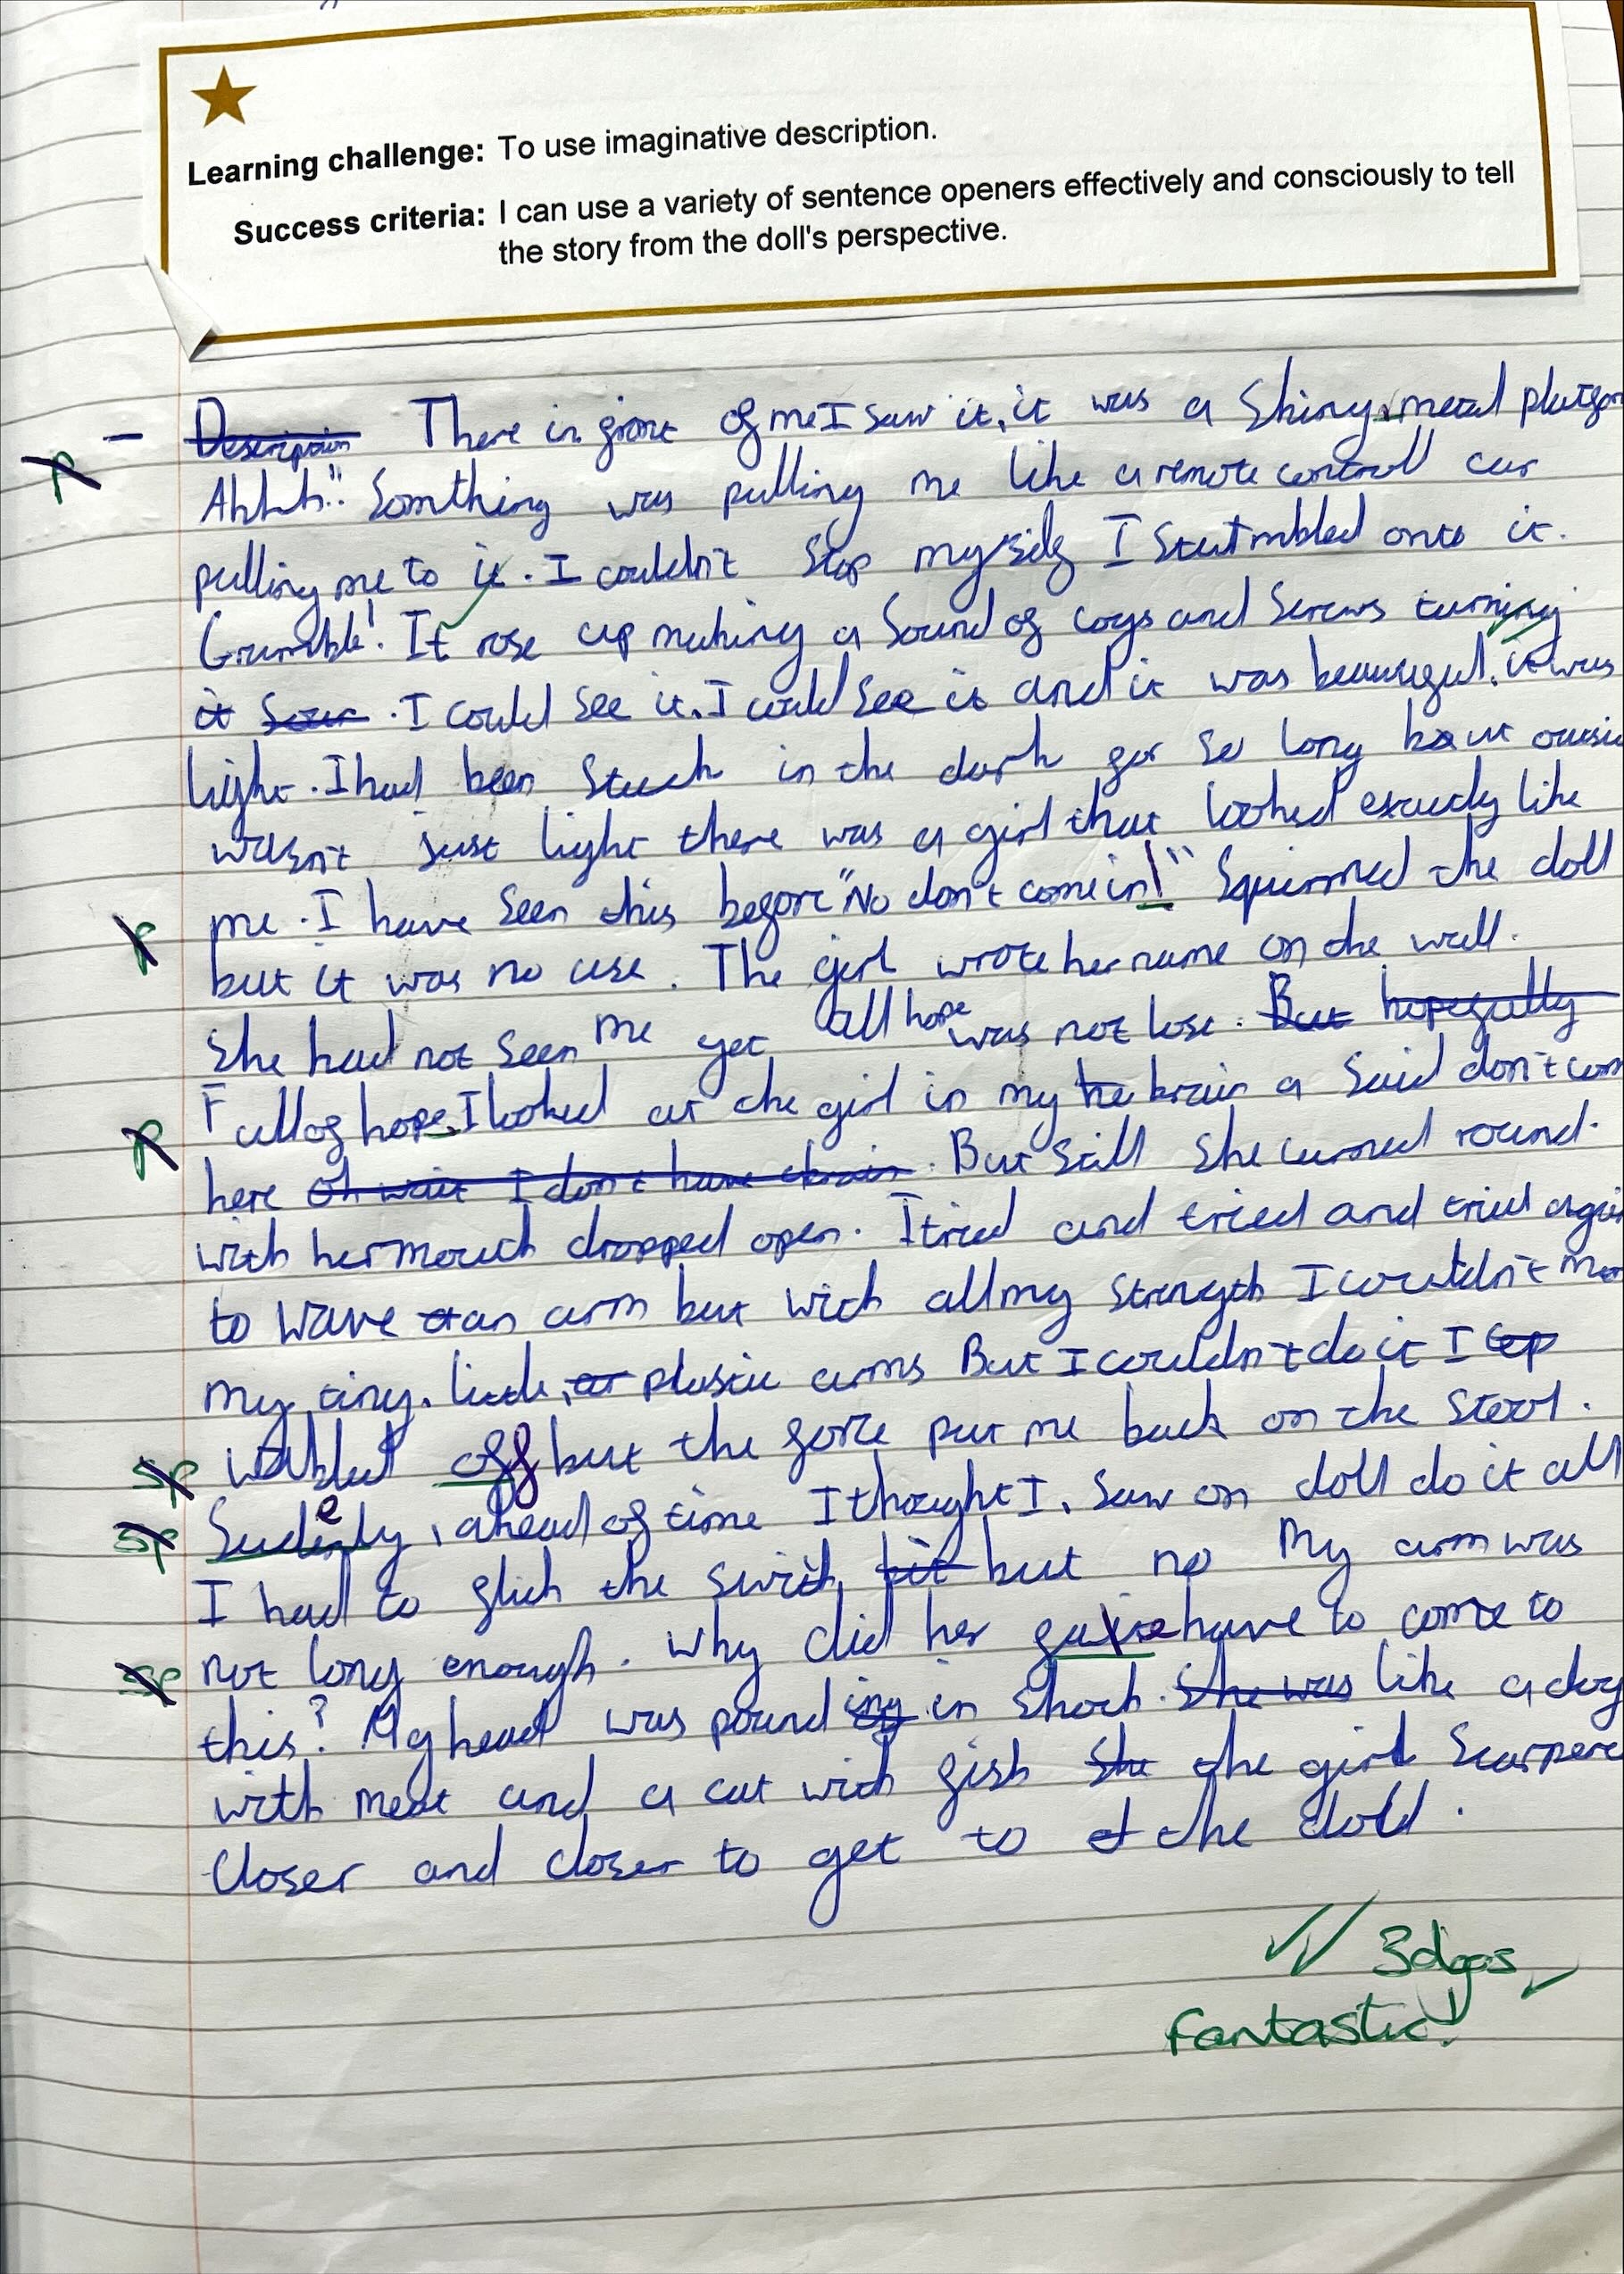 Learning challenge: To use imaginative description.
Success criteria: I can use a variety of sentence openers effectively and consciously to tell
the story from the doll's perspective.
- Description There in front of me I saw it, it was a Shiny, metal platfor
P Ahhh!" Somthing was pulling me like a remote controll car
pulling me to it. I couldn't Stop my self I Stutmbled onto it.
Grumble! It rose up making a Sound of cogs and Screws turning
it . I could See it, I could See it and it was beautiful, it was
light. I had been Stuck in the dark for so long but outsi
wasn't just light there was a girl that looked exactly like
P me. I have Seen this before "No don't come in!" Squirmed the doll
but it was no use. The girl wrote her name on the wall.
She had not Seen me yet all hope was not lose. But hopefully
F ull of hope, I looked at the girl in my brain a Said don't com
P here Oh wait I don't have a brain. But Still She turned round.
with her mouth dropped open. I tried and tried and tried agai
to wave an arm but with all my Strength I couldn't mo
my tiny, little, plastic arms But I couldn't do it I
sp wobbled off but the force put me back on the Stool.
sp Sudenly, ahead of time I thought I, Saw on doll do it all
I had to flick the swich but no My arm was
sp not long enough. Why did her have to come to
this? My head was pounding in Shock. She was like a dog
with meat and a cat with fish She the girl Scarpere
Closer and closer to get to the doll.
3dps
Fantastic!